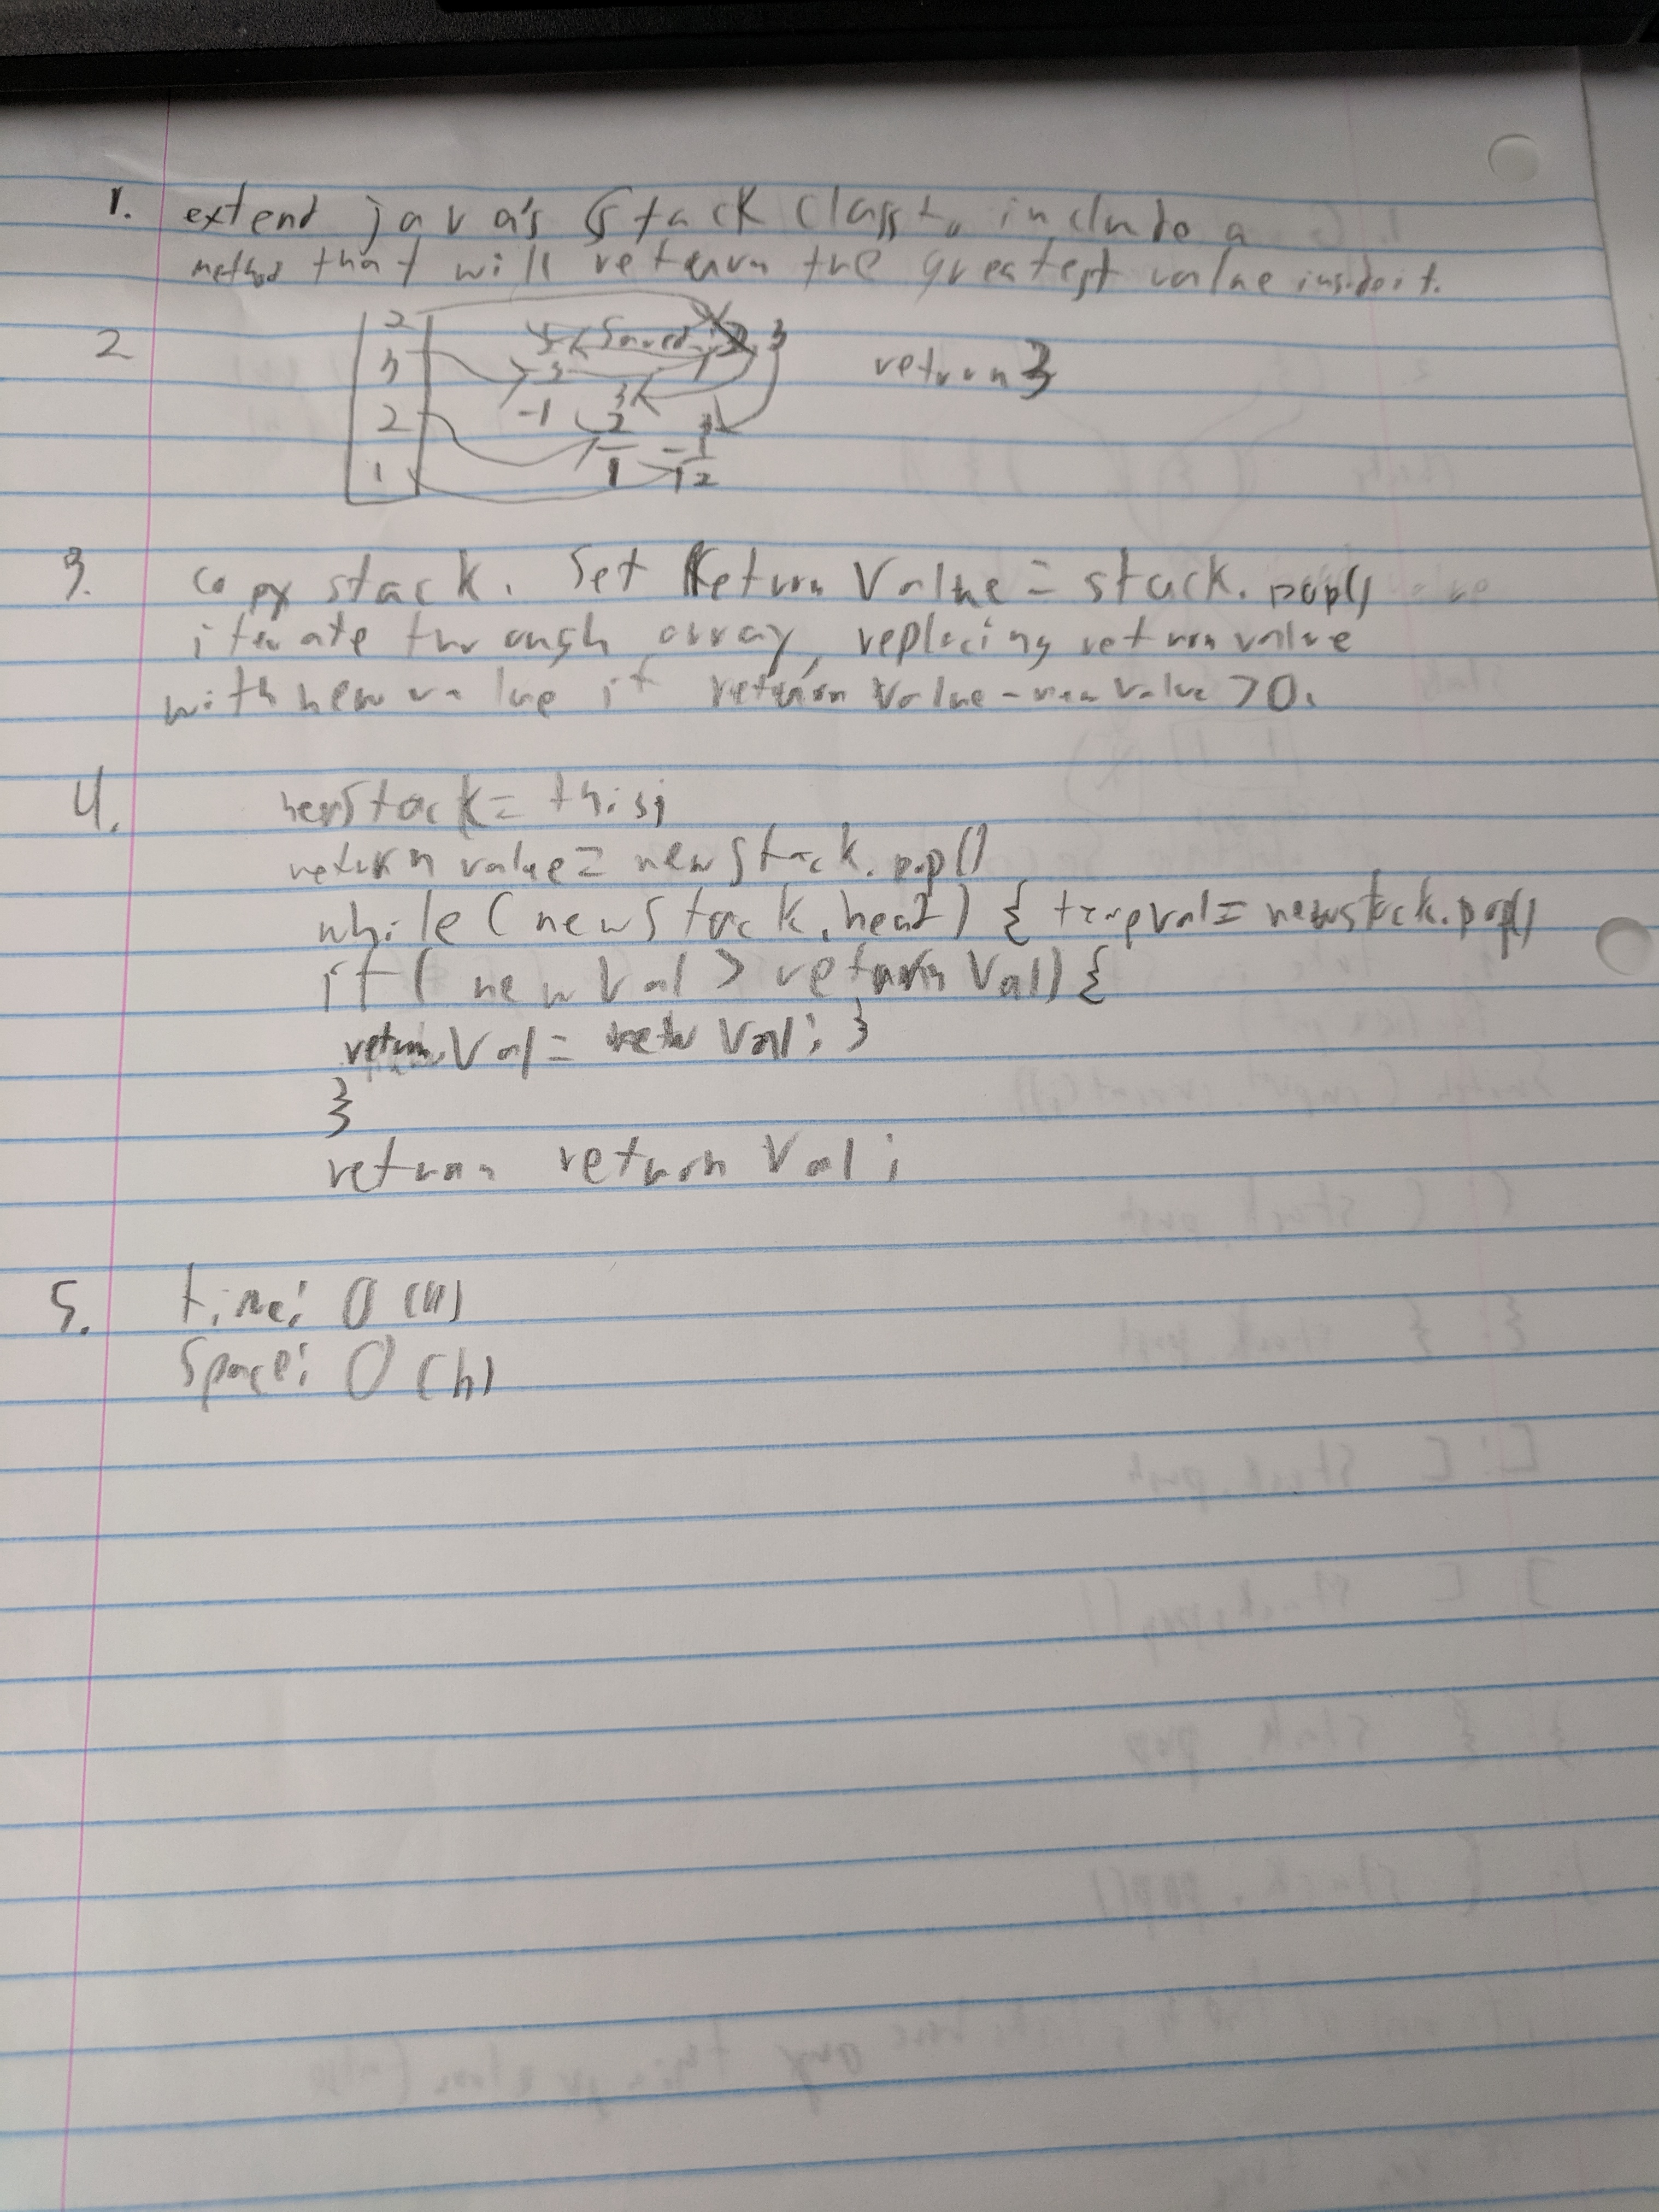 1. extend java's Stack class to include a
method that will return the greatest value inside it.
2
2
3
2
1
Saved:
3
return 3
-1
3
2
1
3
-1
2
3. copy stack. Set Return Value = stack.pop()
iterate through array, replacing return value
with new value if return value - new value > 0.
4. newStack = this;
return value = newstack.pop()
while (newStack.head) { tempval = newstack.pop()
if ( new Val > return Val) {
return Val = new Val; }
}
return return Val;
5. time: O(n)
Space: O(n)